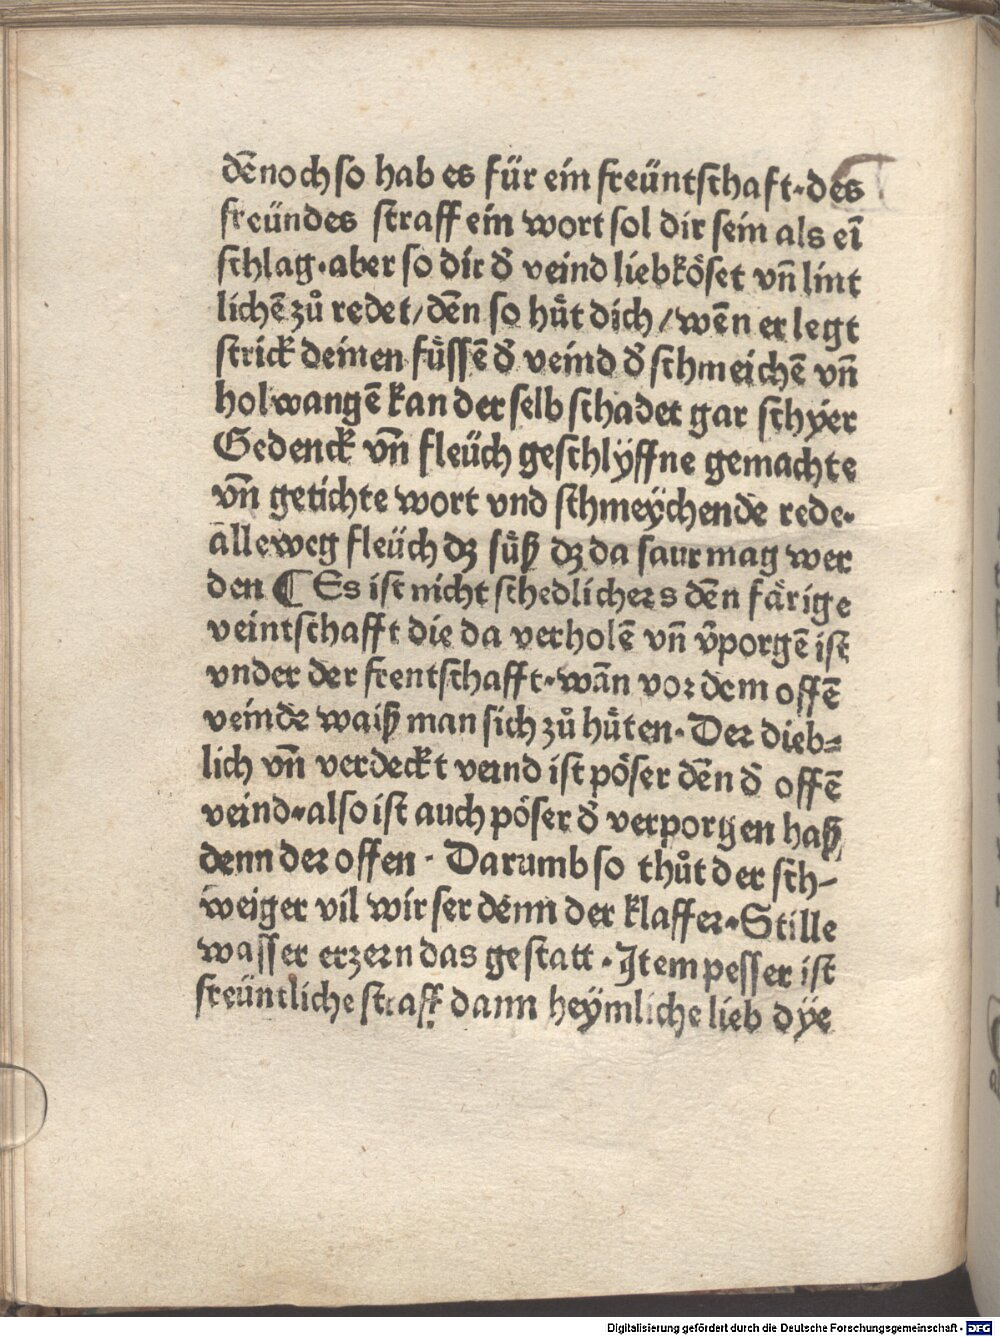 dēnoch so hab es für ein freüntschaft·des
freündes straff ein wort sol dir sein als eī
schlag·aber so dir d̄ veind liebkoͤset vn̄ lint
lichē zů redet/dēn so huͤt dich/wēn er legt
strick deinen fuͤssē d̄ veind d̄ schmeichē vn̄
holwangē kan der selb schadet gar schyer
Gedenck vn̄ fleüch geschlÿffne gemachte
vn̄ getichte wort vnd schmeÿchende rede·
alleweg fleüch dz suͤß dz da saur mag wer
den ¶ Es ist nicht schedlichers dēn faͤrige
veintschafft die da verholē vn̄ v̄porgē ist
vnder der frentschafft·wān vor dem offē
veinde waiß man sich zů huͤten·Der dieb⸗
lich vn̄ verdeckt veind ist poͤser dēn d̄ offē
veind·also ist auch poͤser d̄ verporgen haß
denn der offen · Darumb so thůt der sch-
weiger vil wirser denn der klaffer·Stille
wasser erzern das gestatt·Item pesser ist
freüntliche straff dann heÿmliche lieb dÿe
Digitalisierung gefördert durch die Deutsche Forschungsgemeinschaft - DFG